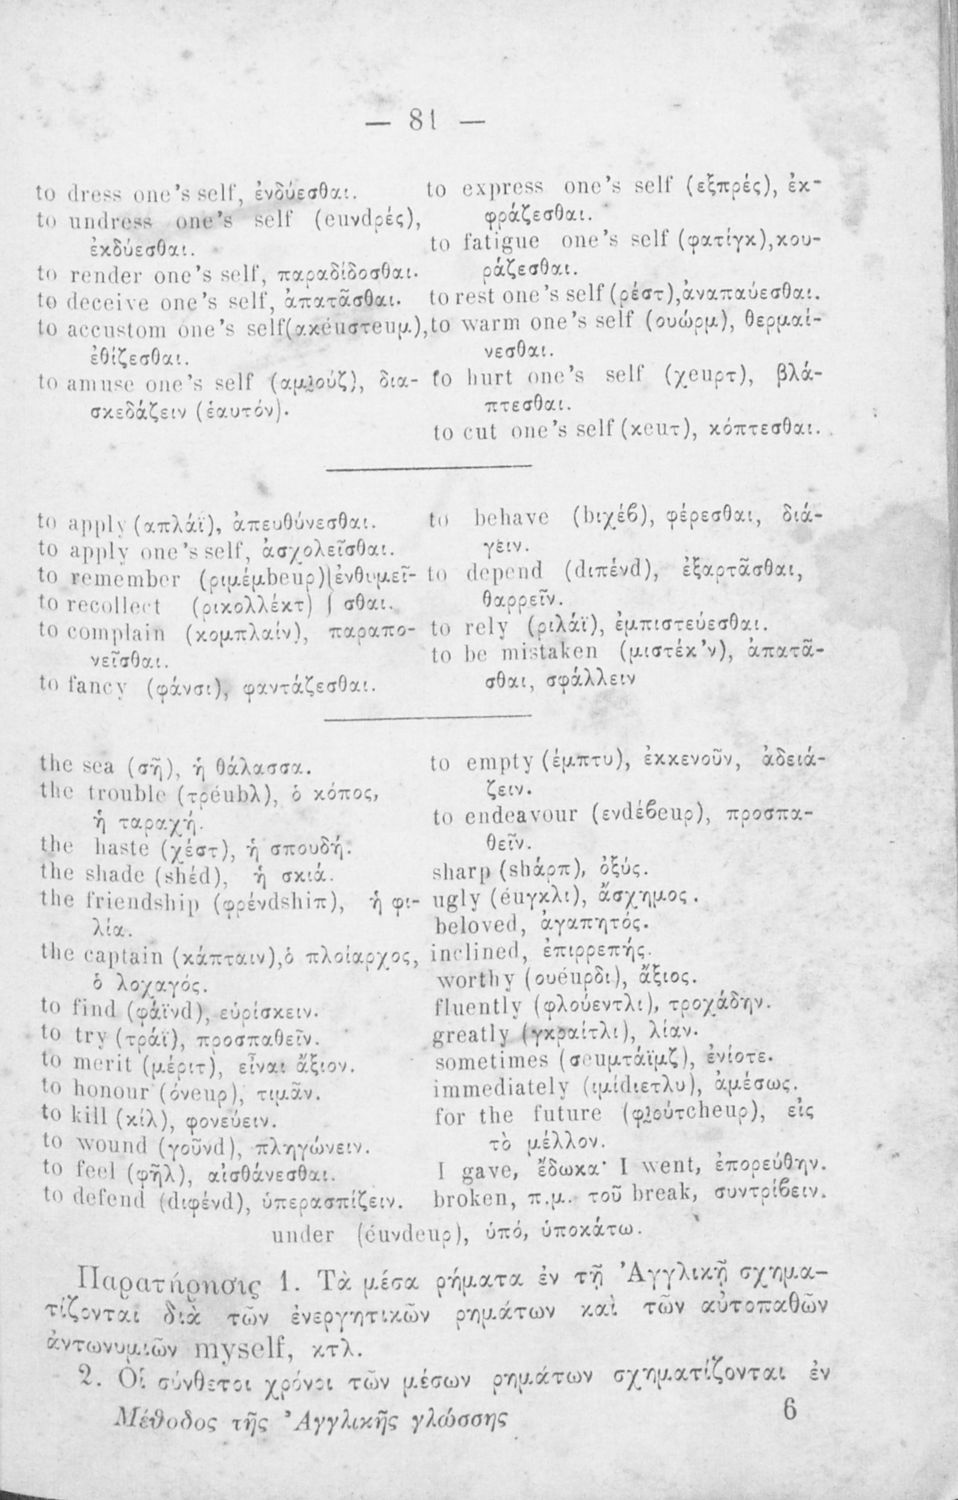 — 81 —
to dress one's self, ἐνδύεσθαι.
to undress one's self (ευνdρές),
ἐκδύεσθαι.
to render one's self, παραδίδοσθαι.
to deceive one's self, ἀπατᾶσθαι.
to accustom one's self(ακέυστευμ.),
ἐθίζεσθαι.
to amuse one's self (αμιούζ), δια-
σκεδάζειν (ἑαυτόν).
to express one's self (εξπρές), ἐκ-
φράζεσθαι.
to fatigue one's self (φατίγκ),κου-
ράζεσθαι.
to rest one's self (ρέστ),ἀναπαύεσθαι.
to warm one's self (ουώρμ), θερμαί-
νεσθαι.
to hurt one's self (χευρτ), βλά-
πτεσθαι.
to cut one's self (κευτ), κόπτεσθαι.
to apply (απλάϊ), ἀπευθύνεσθαι.
to apply one's self, ἀσχολεῖσθαι.
to remember (ριμέμbευρ) ἐνθυμεῖ-
to recollect (ρικολλέκτ) σθαι.
to complain (κομπλαίν), παραπο-
νεῖσθαι.
to fancy (φάνσι), φαντάζεσθαι.
to behave (bιχέϐ), φέρεσθαι, διά-
γειν.
to depend (dιπένd), ἐξαρτᾶσθαι,
θαρρεῖν.
to rely (ριλάϊ), ἐμπιστεύεσθαι.
to be mistaken (μιστέκ'ν), ἀπατᾶ-
σθαι, σφάλλειν
the sea (σῆ), ἡ θάλασσα.
the trouble (τρέυbλ), ὁ κόπος,
ἡ ταραχή.
the haste (χέστ), ἡ σπουδή.
the shade (shέd), ἡ σκιά.
the friendship (φρένdshiπ), ἡ φι-
λία.
the captain (κάπταιν),ὁ πλοίαρχος,
ὁ λοχαγός.
to find (φάϊνd), εὑρίσκειν.
to try (τράϊ), προσπαθεῖν.
to merit (μέριτ), εἶναι ἄξιον.
to honour (όνευρ), τιμᾶν.
to kill (κίλ), φονεύειν.
to wound (γοῦνd), πληγώνειν.
to feel (φῆλ), αἰσθάνεσθαι.
to defend (dιφένd), ὑπερασπίζειν.
to empty (έμπτυ), ἐκκενοῦν, ἀδειά-
ζειν.
to endeavour (ενdέϐευρ), προσπα-
θεῖν.
sharp (shάρπ), ὀξύς.
ugly (έυγκλι), ἄσχημος.
beloved, ἀγαπητός.
inclined, ἐπιρρεπής.
worthy (ουέυρδι), ἄξιος.
fluently (φλούεντλι), τροχάδην.
greatly (γκραίτλι), λίαν.
sometimes (σευμτάϊμζ), ἐνίοτε.
immediately (ιμίdιετλυ), ἀμέσως.
for the future (φιούτcheυρ), εἰς
τὸ μέλλον.
I gave, ἔδωκα· I went, ἐπορεύθην.
broken, π.μ. τοῦ break, συντρίϐειν.
under (έυνdευρ), ὑπό, ὑποκάτω.
Παρατήρησις 1. Τὰ μέσα ρήματα ἐν τῇ Ἀγγλικῇ σχημα-
τίζονται διὰ τῶν ἐνεργητικῶν ρημάτων καὶ τῶν αὐτοπαθῶν
ἀντωνυμιῶν myself, κτλ.
2. Οἱ σύνθετοι χρόνοι τῶν μέσων ρημάτων σχηματίζονται ἐν
Μέθοδος τῆς Ἀγγλικῆς γλώσσης 6